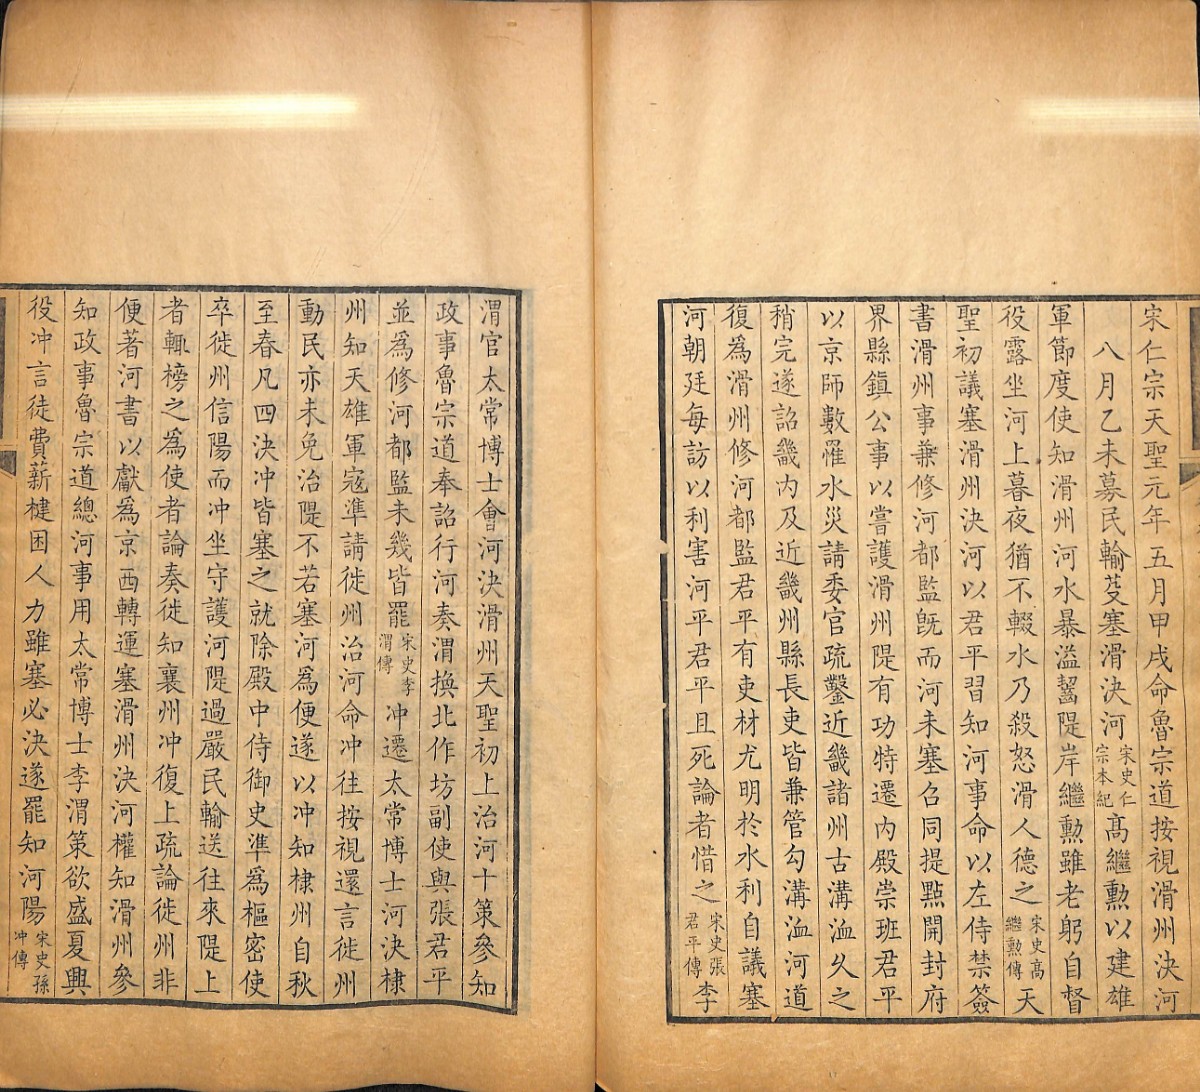 宋仁宗天聖元年五月甲戌命魯宗道按視滑州決河
八月乙未募民輸芟塞滑決河宋史仁宗本紀高繼勲以建雄
軍節度使知滑州河水暴溢齧隄岸繼勲雖老躬自督
役露坐河上暮夜猶不輟水乃殺怒滑人德之宋史高繼勲傳天
聖初議塞滑州決河以君平習知河事命以左侍禁簽
書滑州事兼修河都監既而河未塞召同提點開封府
界縣鎮公事以嘗護滑州隄有功特遷內殿崇班君平
以京師數罹水災請委官疏鑿近畿諸州古溝洫久之
稍完遂詔畿內及近畿州縣長吏皆兼管勾溝洫河道
復為滑州修河都監君平有吏材尤明於水利自議塞
河朝廷每訪以利害河平君平且死論者惜之宋史張君平傳李
渭官太常博士會河決滑州天聖初上治河十策參知
政事魯宗道奉詔行河奏渭換北作坊副使與張君平
並為修河都監未幾皆罷宋史李渭傳冲遷太常博士河決棣
州知天雄軍寇準請徙州治河命冲往按視還言徙州
動民亦未免治隄不若塞河為便遂以冲知棣州自秋
至春凡四決冲皆塞之就除殿中侍御史準為樞密使
卒徙州信陽而冲坐守護河隄過嚴民輸送往來隄上
者輒榜之為使者論奏徙知襄州冲復上疏論徙州非
便著河書以獻為京西轉運塞滑州決河權知滑州參
知政事魯宗道總河事用太常博士李渭策欲盛夏興
役冲言徒費薪楗困人力雖塞必決遂罷知河陽宋史孫冲傳